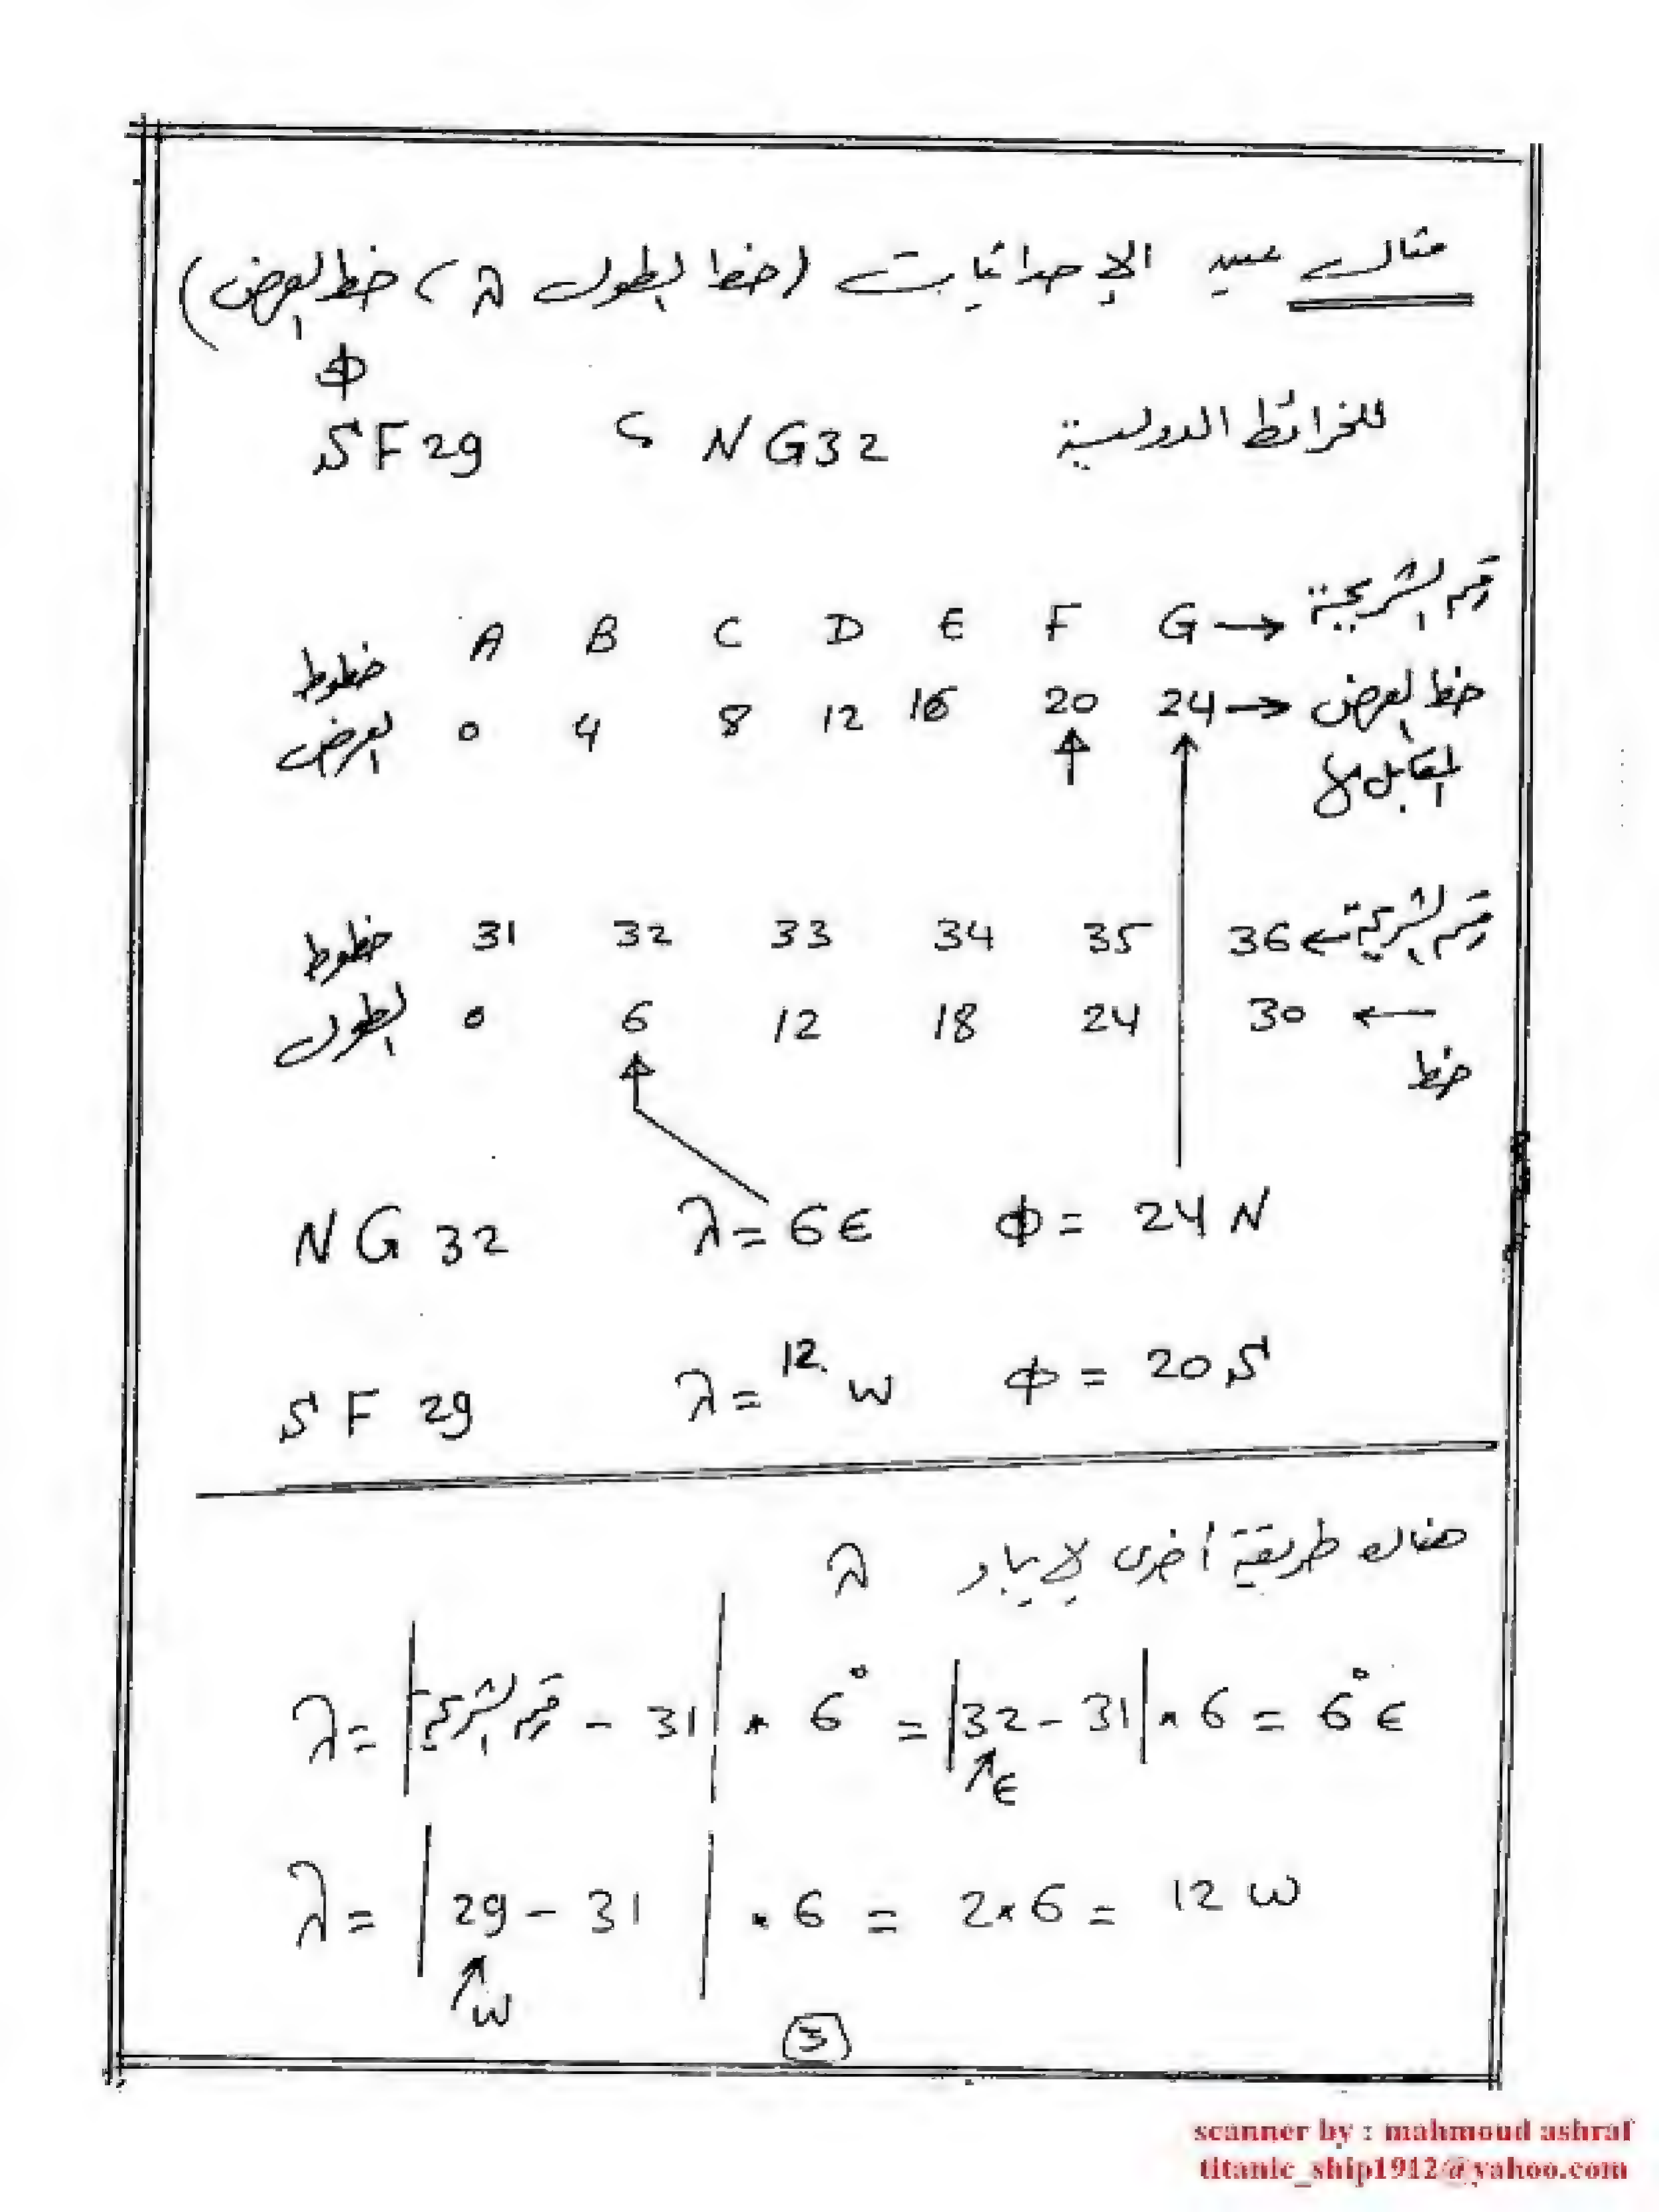 مثال عين الإحداثيات (خط الطول λ ، خط العرض)
Φ
للخرائط الدولية NG32 ، SF29
A B C D E F G → رقم الشريحة
خطوط العرض 0 4 8 12 16 20 24 → خط العرض المقابل لها
خطوط 31 32 33 34 35 36 ← رقم الشريحة
الطول 0 6 12 18 24 30 ← خط
NG 32 λ = 6E Φ = 24 N
SF 29 λ = 12 W Φ = 20 S
هناك طريقة أخرى لإيجاد λ
λ = |رقم الشريحة - 31| * 6° = |32 - 31| * 6 = 6° E
↑E
λ = |29 - 31| * 6 = 2*6 = 12 W
↑W
3
scanner by : mahmoud ashraf
titanic_ship1912@yahoo.com